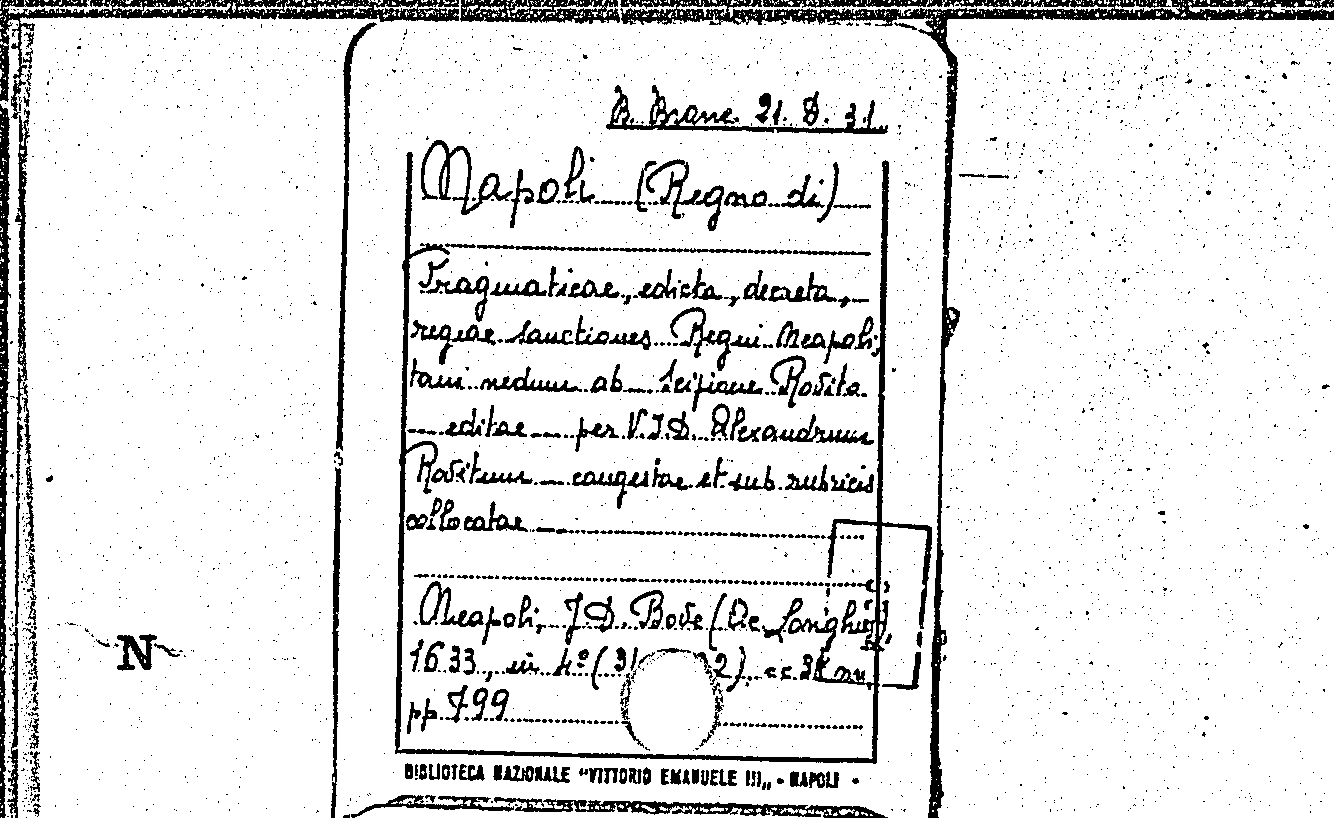 B. Branc. 21. D. 31.
Napoli (Regno di)
Pragmaticae, edicta, decreta,
regiae sanctiones Regni Neapoli,
tani nedum ab Scipione Rovito
— editae — per V.J.D. Alexandrum
Rovitum — congestae et sub rubricis
collocatae —
Neapoli, J.D. Bove (De Langhis),
1633, in 4º (31 2), cc 38 nn,
pp 799
N
BIBLIOTECA NAZIONALE "VITTORIO EMANUELE III„ - NAPOLI -